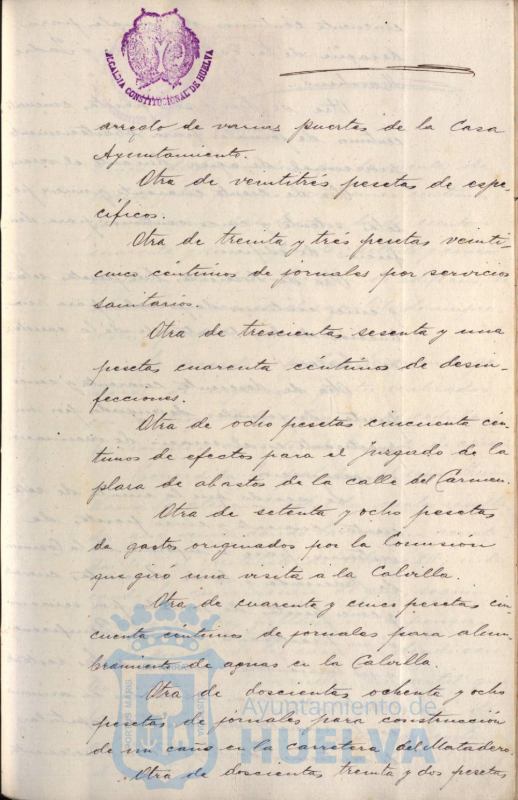 ALCALDIA CONSTITUCIONAL DE HUELVA
arreglo de varias puertas de la Casa
Ayuntamiento.
Otra de veintitrés pesetas de espe-
cíficos.
Otra de treinta y tres pesetas veinti-
cinco céntimos de jornales por servicios
sanitarios.
Otra de trescientas sesenta y una
pesetas cuarenta céntimos de desin-
fecciones.
Otra de ocho pesetas cincuenta cén-
timos de efectos para el Juzgado de la
plaza de abastos de la calle del Carmen.
Otra de setenta y ocho pesetas
de gastos originados por la Comisión
que giró una visita a la Calvilla.
Otra de cuarenta y cinco pesetas cin-
cuenta céntimos de jornales para alum-
bramiento de aguas en la Calvilla.
Otra de doscientas ochenta y ocho
pesetas de jornales para construcción
de un caño en la carretera del Matadero.
Otra de doscientas treinta y dos pesetas
Ayuntamiento de
HUELVA